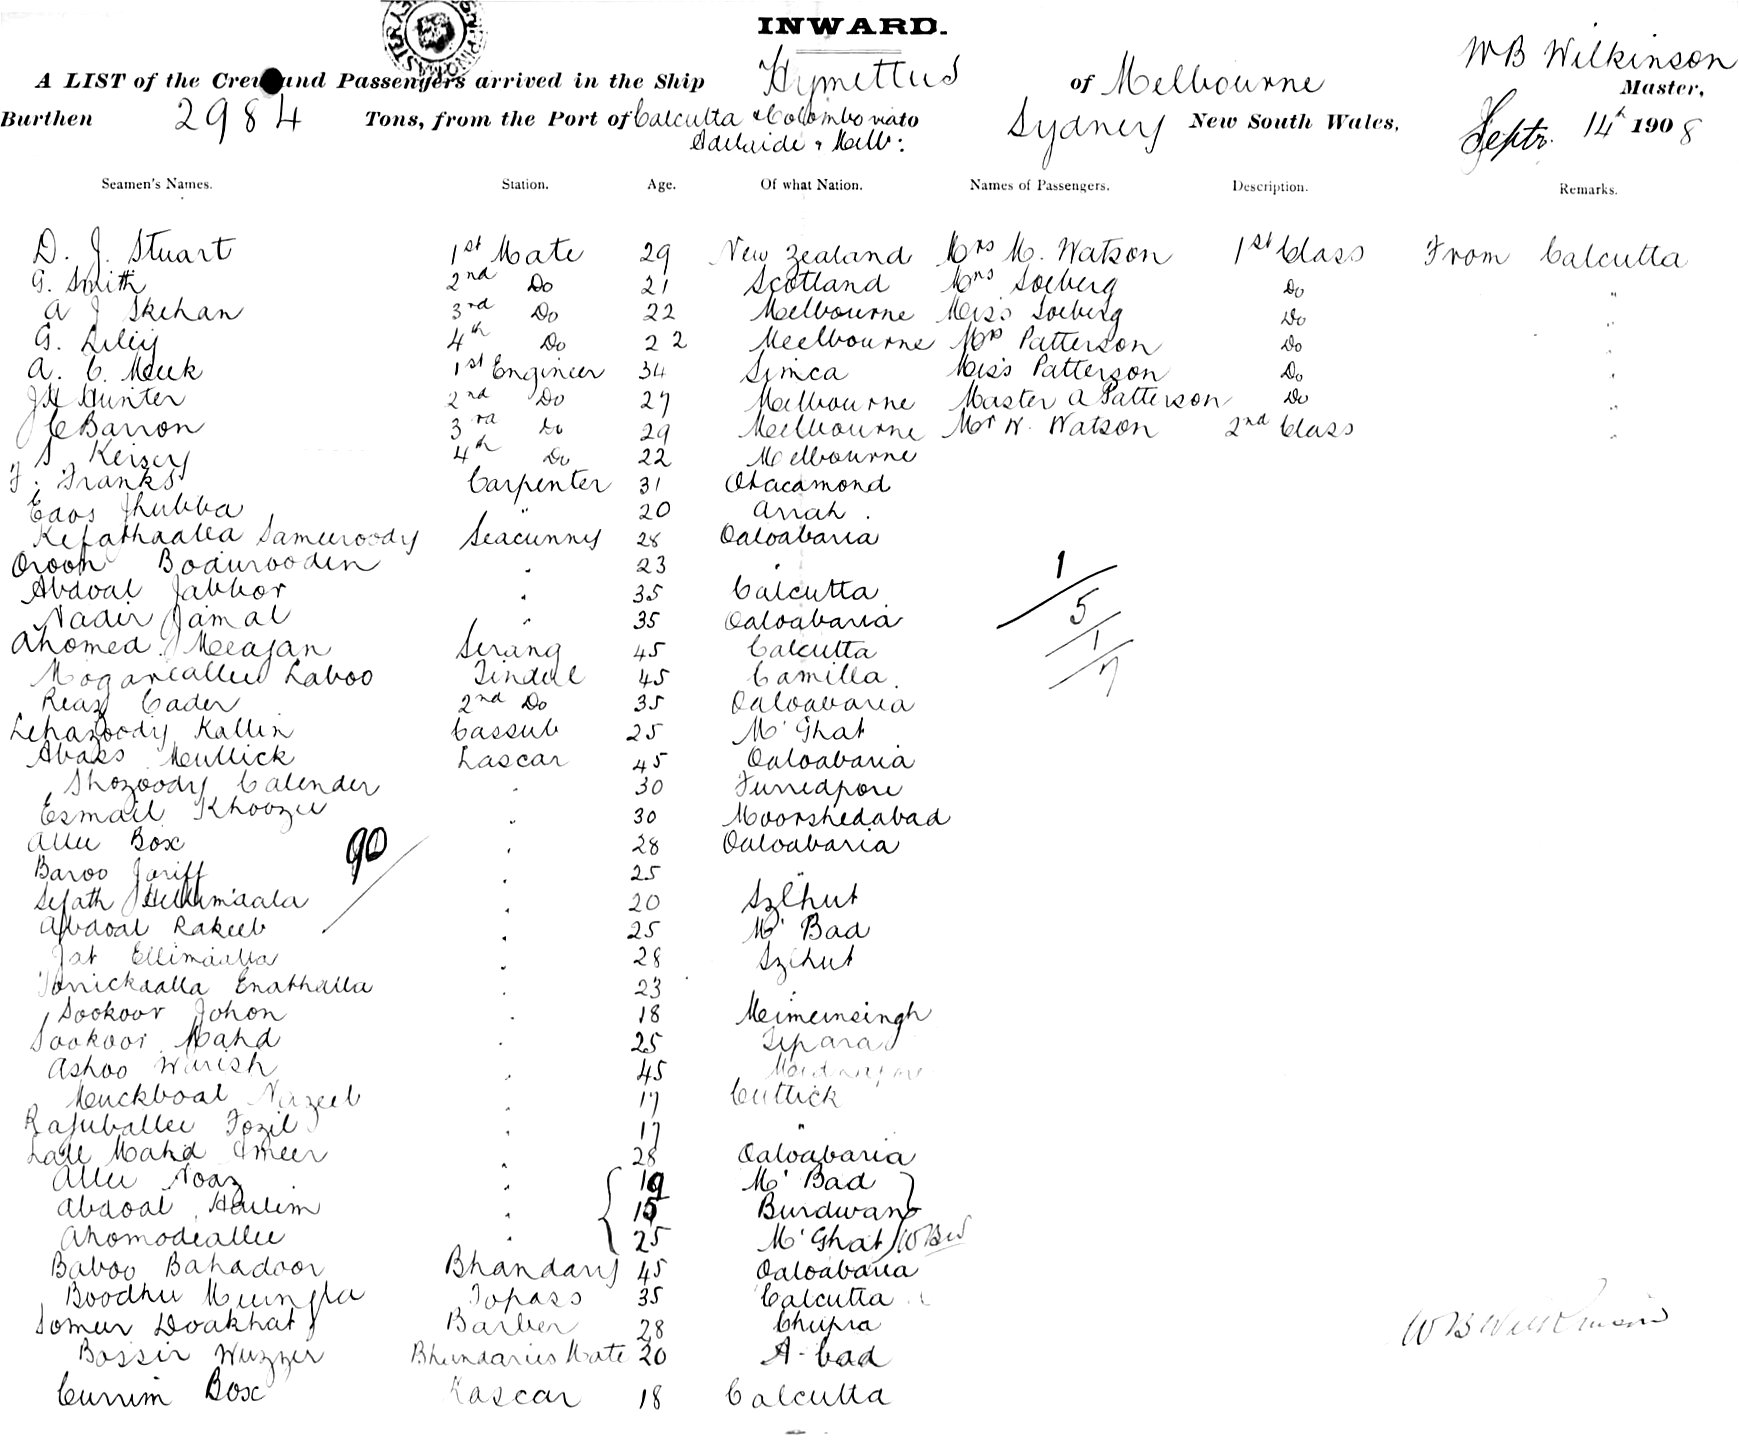 INWARD.
W B Wilkinson
A LIST of the Crew and Passengers arrived in the Ship Hymettus of Melbourne Master,
Burthen 2984 Tons, from the Port of Calcutta & Colombo via to Sydney New South Wales, Septr. 14th 1908
Adelaide & Melb:
Seamen's Names. Station. Age. Of what Nation. Names of Passengers. Description. Remarks.
D. J. Stuart 1st Mate 29 New Zealand Mrs M. Watson 1st Class From Calcutta
G. Smith 2nd Do 21 Scotland Mrs Soeberg Do "
A J Skehan 3rd Do 22 Melbourne Miss Soeberg Do "
G. Lilly 4th Do 22 Melbourne Mrs Patterson Do "
A. C. Meek 1st Engineer 34 Miss Patterson Do "
J H Hunter 2nd Do 27 Melbourne Master A Patterson Do "
J C Barron 3rd Do 29 Melbourne Mr W. Watson 2nd Class "
S. Keisey 4th Do 22 Melbourne
F. Franks Carpenter 31 Otacamond
Eaos Jhubba " 20 Arrah.
Kefathaalla Sameeroody Seacunny 28 Oaloabaria
Oroon Bodurooden " 23 "
Abdoal Jabbor " 35 Calcutta
Nadir Jamal " 35 Oaloabaria
Ahomed Meajan Serang 45 Calcutta
Mogarcallee Laboo Tindal 45 Camilla
Reaz Cader 2nd Do 35 Oaloabaria
Lehazoody Kallin Cassub 25 M' Ghat
Abass Mullick Lascar 45 Oaloabaria
Shozoody Calender " 30 Furredpore
Esmail Khoozee " 30 Moorshedabad
Allee Box " 28 Oaloabaria
90
Baroo Jariff " 25 "
Sefath " 20 Szlhut
Abdoal Rakeeb " 25 M' Bad
Jat Ellimaulla " 28 Szlhut
Tonickaalla Enathalla " 23 "
Sookoor Johon " 18 Meimeinsingh
Sookoor Mahd " 25 Tipara
Ashoo Warish " 45
Muckboal Nazeeb " 17 Cuttick
Rajuballee Fozil " 17 "
Lall Mahd Ameer " 28 Oaloabaria
Allee Noaz " 19 M' Bad
Abdoal Hallim " 15 Burdwan
Ahomodeallee " 25 M' Ghat WBW
Baboo Bahadoor Bhandary 45 Oaloabaria
Boodhu Topass 35 Calcutta
Somer Doakhat Barber 28 Chupra
Bassir Wuzzer Bhundaries Mate 20 A-bad
Currim Box Lascar 18 Calcutta
1/5/1/7
W B Wilkinson